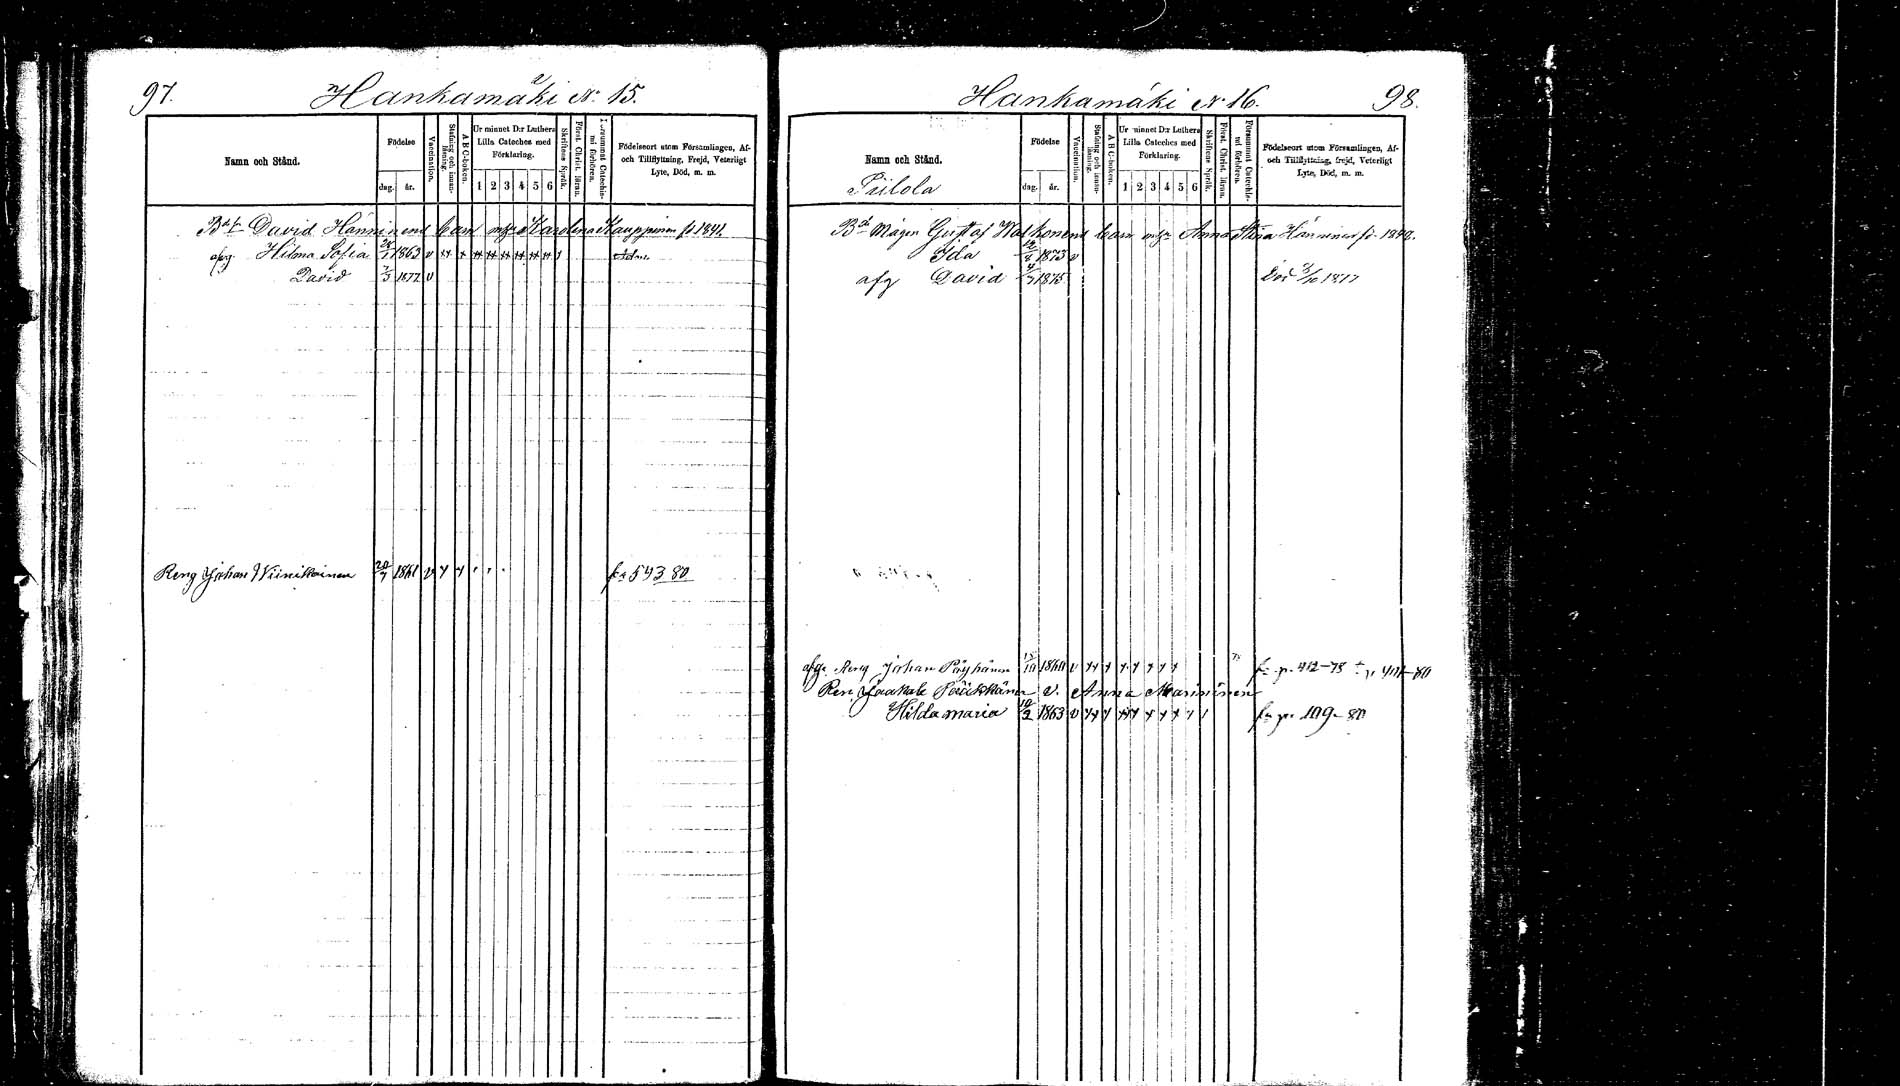 97.
Hankamäki N: 15.
Namn och Stånd.
Födelse
dag. år.
Vaccination.
Stafning och innan-läsning.
A B C-boken.
Ur minnet D:r Luthers Lilla Cateches med Förklaring.
1 2 3 4 5 6
Skriftens Språk.
Först. Christ. läran.
Försummat Catechismi förhören.
Födelseort utom Församlingen, Af- och Tillflyttning, Frejd, Veterligt Lyte, Död, m. m.
David Hänninens barn m hu Karolina Kauppinen f. 1841.
afg. Hilma Sofia 1863 v
David 7/3 1877 v
Reng Johan Wiinikainen 20/7 1861 v
fr 543 80
Hankamäki N 16.
98.
Namn och Stånd.
Piilola
Födelse
dag. år.
Vaccination.
Stafning och innan-läsning.
A B C-boken.
Ur minnet D:r Luthers Lilla Cateches med Förklaring.
1 2 3 4 5 6
Skriftens Språk.
Först. Christ. läran.
Försummat Catechismi förhören.
Födelseort utom Församlingen, Af- och Tillflyttning, frejd, Veterligt Lyte, Död, m. m.
Mågen Gustaf Walkonens barn m hu Anna Stina Hänninen
Ida 1873 v
afg David 1875 Död 1877
afg. Reng Johan Pöyhönen 1860 v fr p. 412-78
Ren Jaakab Pääkkönen v. Anna Marininen
Hilda maria 10/2 1863 v fr p. 109-80